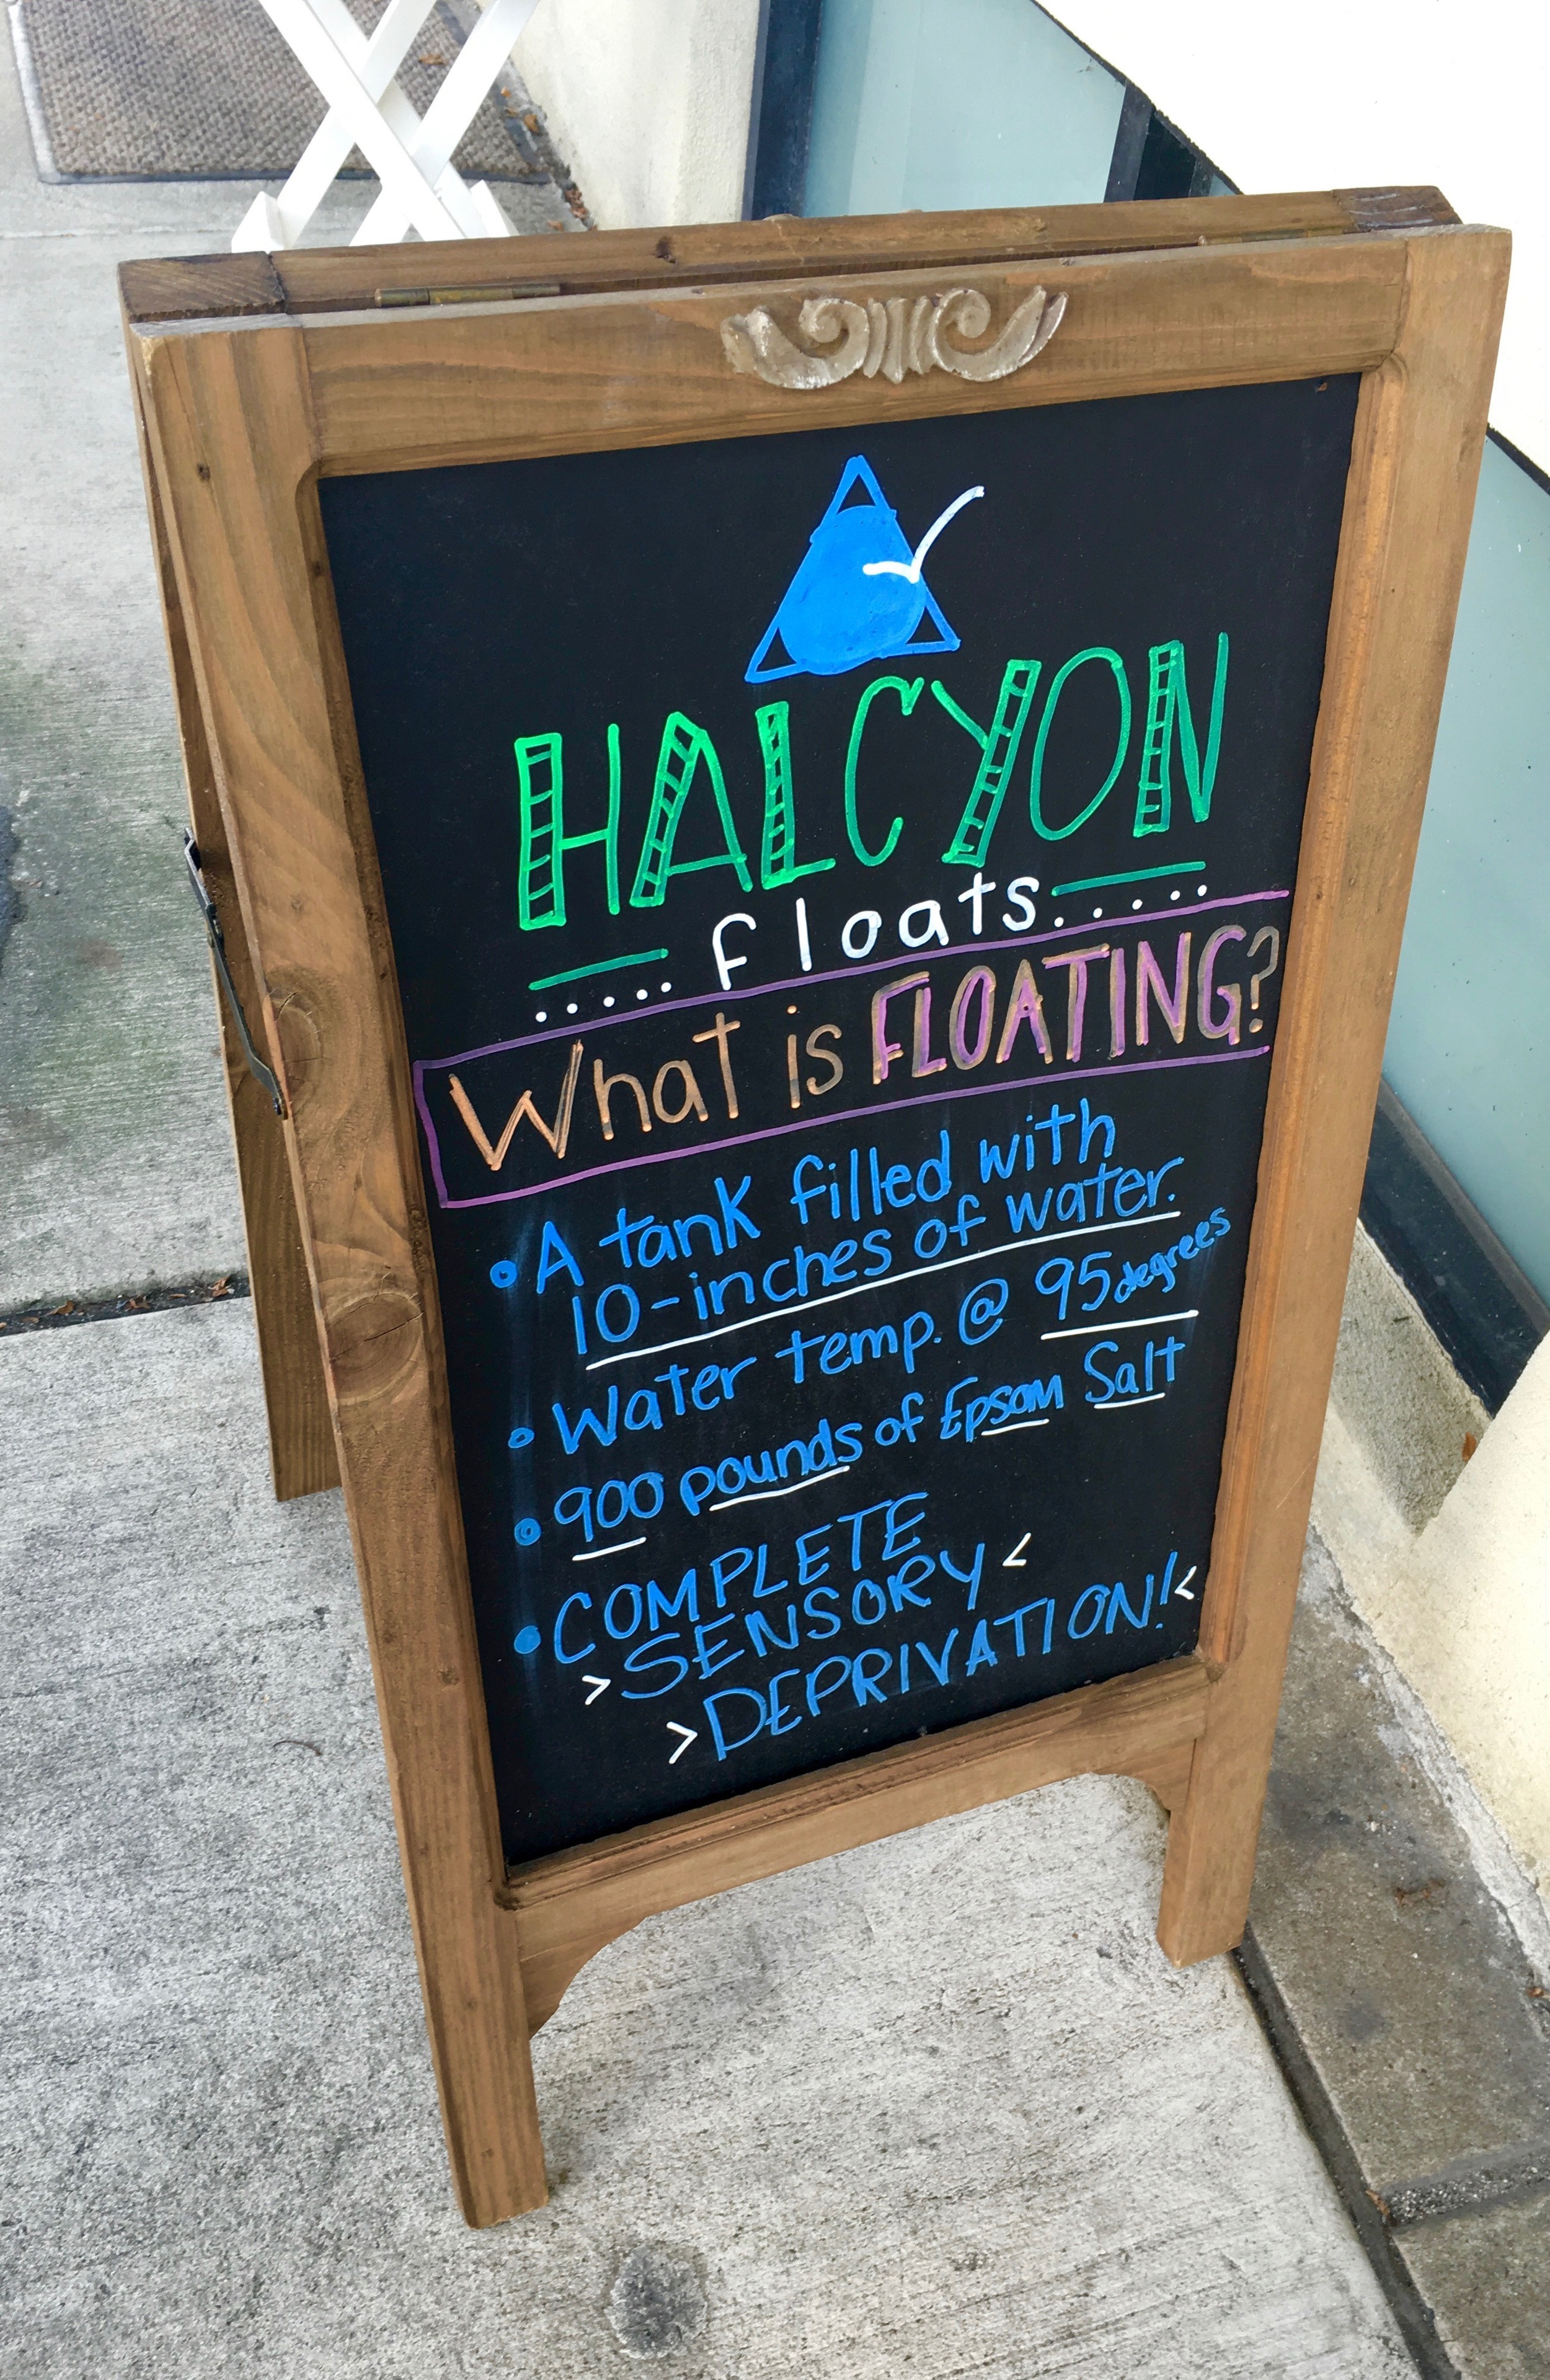 HALCYON
.....floats.....
What is FLOATING?
• A tank filled with
10-inches of water.
• Water temp. @ 95 degrees
• 900 pounds of Epsom Salt
• COMPLETE
>SENSORY<
>DEPRIVATION!<